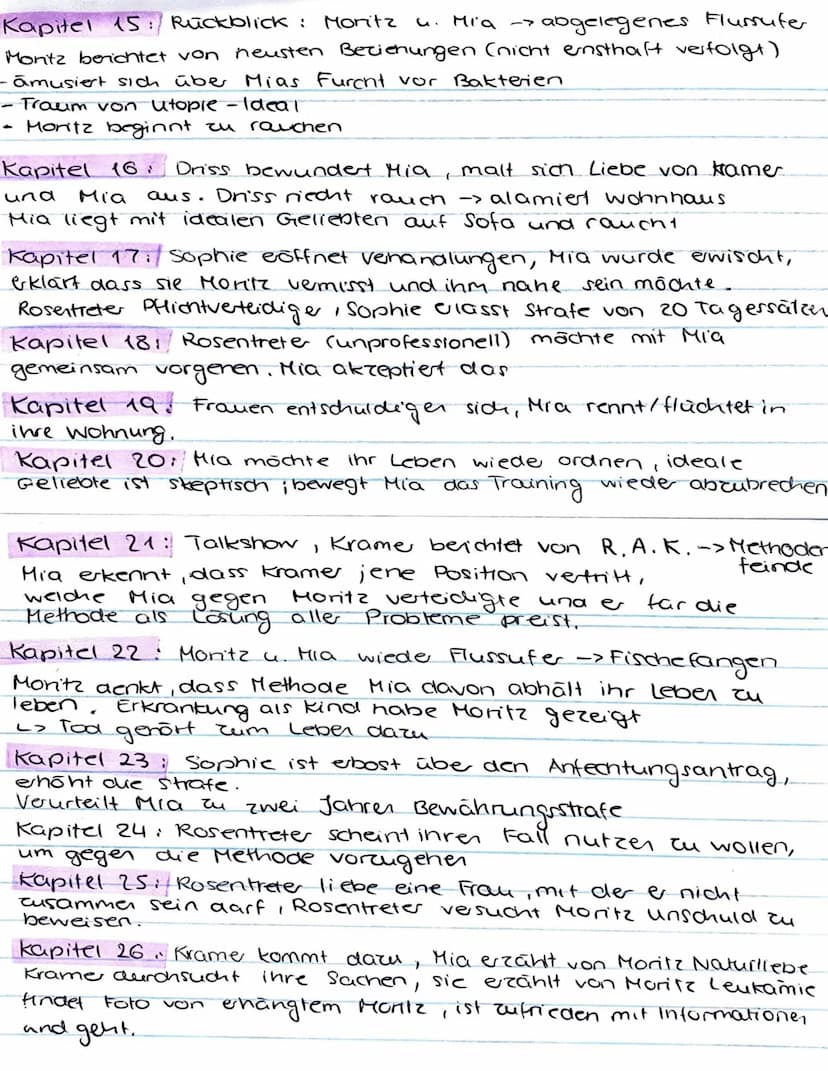 Kapitel 15: Rückblick: Moritz u. Mia -> abgelegenes Flussufer
Moritz berichtet von neusten Beziehungen (nicht ernsthaft verfolgt)
- ämusiert sich über Mias Furcht vor Bakterien
- Traum von Utopie - Ideal
- Moritz beginnt zu rauchen
Kapitel 16: Driss bewundert Mia, malt sich Liebe von Kramer
und Mia aus. Driss riecht rauch -> alamiert wohnhaus
Mia liegt mit idealen Geliebten auf Sofa und raucht
Kapitel 17: Sophie eröffnet Verhandlungen, Mia wurde erwischt,
erklärt dass sie Moritz vermisst und ihm nahe sein möchte.
Rosentreter Pflichtverteidiger, Sophie erlässt Strafe von 20 Tagersätzen
Kapitel 18: Rosentreter (unprofessionell) möchte mit Mia
gemeinsam vorgehen. Mia akzeptiert das
Kapitel 19: Frauen entschuldigen sich, Mia rennt/flüchtet in
ihre Wohnung.
Kapitel 20: Mia möchte ihr Leben wieder ordnen, ideale
Geliebte ist skeptisch; bewegt Mia das Training wieder abzubrechen
Kapitel 21: Talkshow, Kramer berichtet von R.A.K. -> Methoden
feinde
Mia erkennt, dass Kramer jene Position vertritt,
welche Mia gegen Moritz verteidigte und er für die
Methode als Lösung aller Probleme preist.
Kapitel 22: Moritz u. Mia wieder Flussufer -> Fische fangen
Moritz denkt, dass Methode Mia davon abhält ihr Leben zu
leben. Erkrankung als Kind habe Moritz gezeigt
↳ Tod gehört zum Leben dazu
Kapitel 23: Sophie ist erbost über den Anfechtungsantrag,
erhöht die Strafe.
Verurteilt Mia zu zwei Jahren Bewährungsstrafe
Kapitel 24: Rosentreter scheint ihren Fall nutzen zu wollen,
um gegen die Methode vorzugehen
Kapitel 25: Rosentreter liebe eine Frau, mit der er nicht
zusammen sein darf, Rosentreter versucht Moritz unschuld zu
beweisen.
Kapitel 26: Kramer kommt dazu, Mia erzählt von Moritz Naturliebe
Kramer durchsucht ihre Sachen, sie erzählt von Moritz Leukämie
findet Foto von erhängtem Moritz, ist zufrieden mit Informationen
und geht.